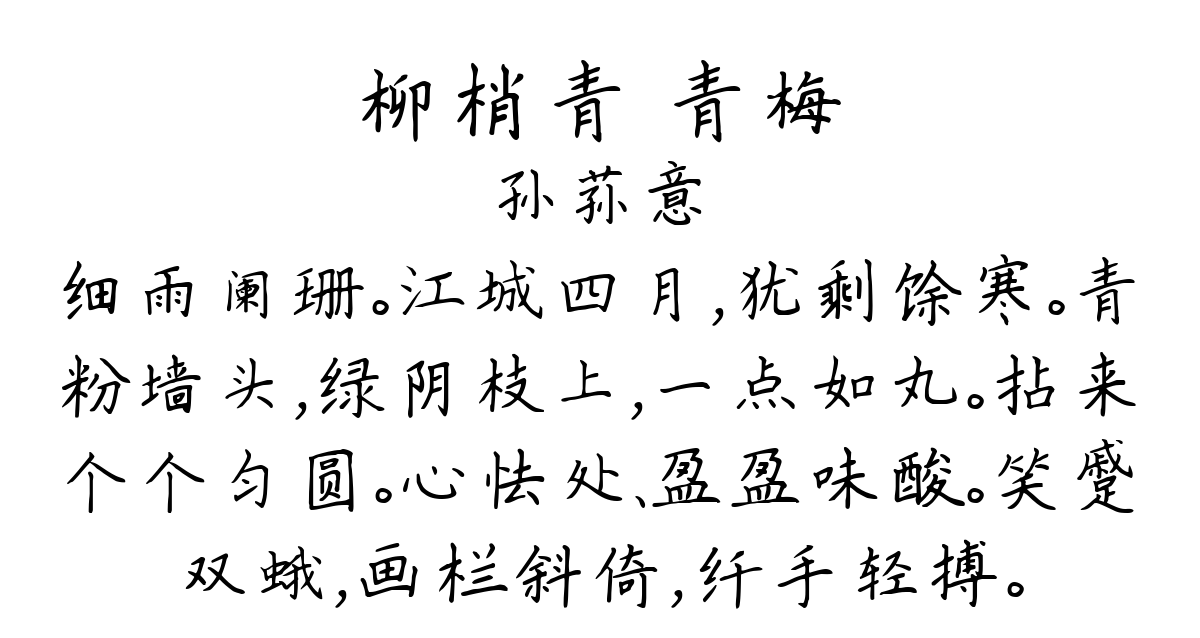 柳梢青 青梅
孙荪意
细雨阑珊。江城四月,犹剩馀寒。青
粉墙头,绿阴枝上,一点如丸。拈来
个个匀圆。心怯处、盈盈味酸。笑蹙
双蛾,画栏斜倚,纤手轻搏。